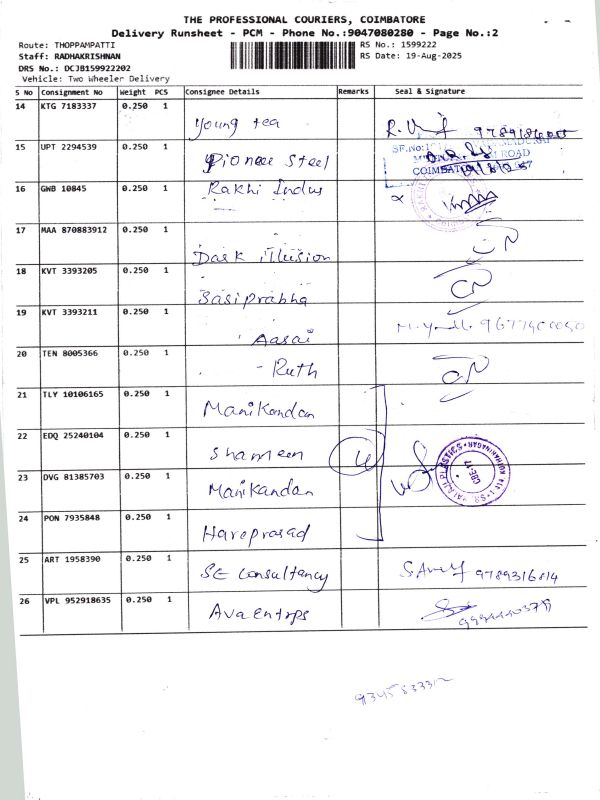 THE PROFESSIONAL COURIERS, COIMBATORE
Delivery Runsheet - PCM - Phone No.:9047080280 - Page No.:2
Route: THOPPAMPATTI RS No.: 1599222
Staff: RADHAKRISHNAN RS Date: 19-Aug-2025
DRS No.: DCJB159922202
Vehicle: Two Wheeler Delivery
S No Consignment No Weight PCS Consignee Details Remarks Seal & Signature
14 KTG 7183337 0.250 1 Young tea
15 UPT 2294539 0.250 1 Pioneer Steel
16 GWB 10845 0.250 1 Rakhi Indus
17 MAA 870883912 0.250 1 Dark illusion
18 KVT 3393205 0.250 1 Sasiprabha
19 KVT 3393211 0.250 1 Aasai
20 TEN 8005366 0.250 1 Ruth
21 TLY 10106165 0.250 1 Manikandan
22 EDQ 25240104 0.250 1 Shameen
23 DVG 81385703 0.250 1 Manikandan
24 PON 7935848 0.250 1 Hareprasad
25 ART 1958390 0.250 1 SE Consultancy 9789316814
26 VPL 952918635 0.250 1 Ava Entrps